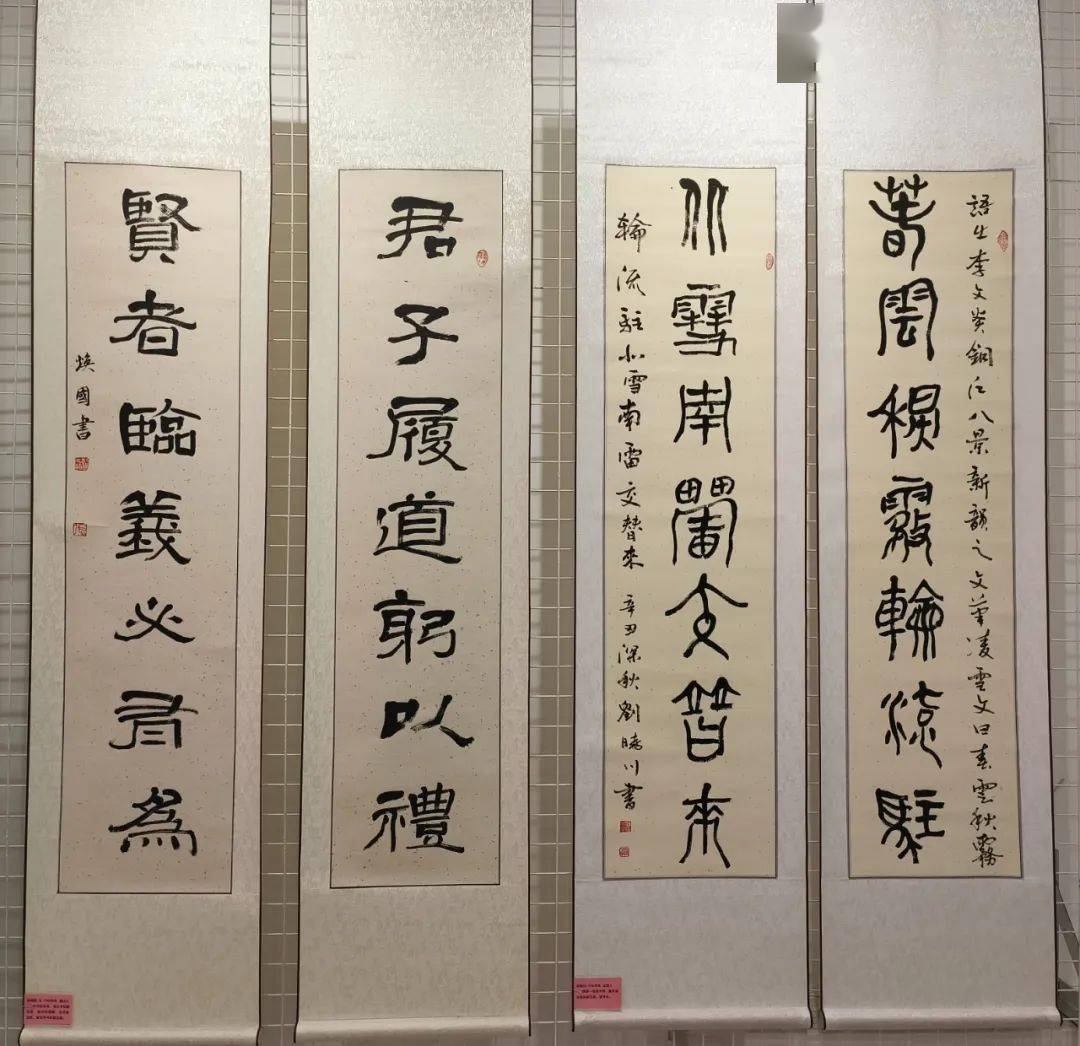 語出李文炎銅江八景新韻之文華凌雲文曰春雲秋霧
春雲秋霧輪流駐
北雪南雷交替來
輪流駐北雪南雷交替來 辛丑深秋劉曉川書
君子履道躬以禮
賢者臨義必有為
煥國書